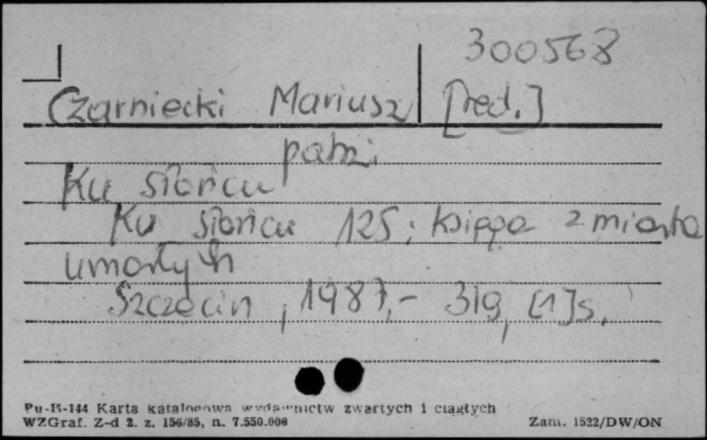 300568
Czarniecki Mariusz [red.]
patrz.
Ku słońcu
Ku słońcu 125: księga z miasta
umarłych
Szczecin, 1987.- 319, [1]s.
Pu-B-144 Karta katalogowa wydawnictw zwartych i ciągłych
WZGraf. Z-d 2. z. 156/85, n. 7.550.000 Zam. 1522/DW/ON